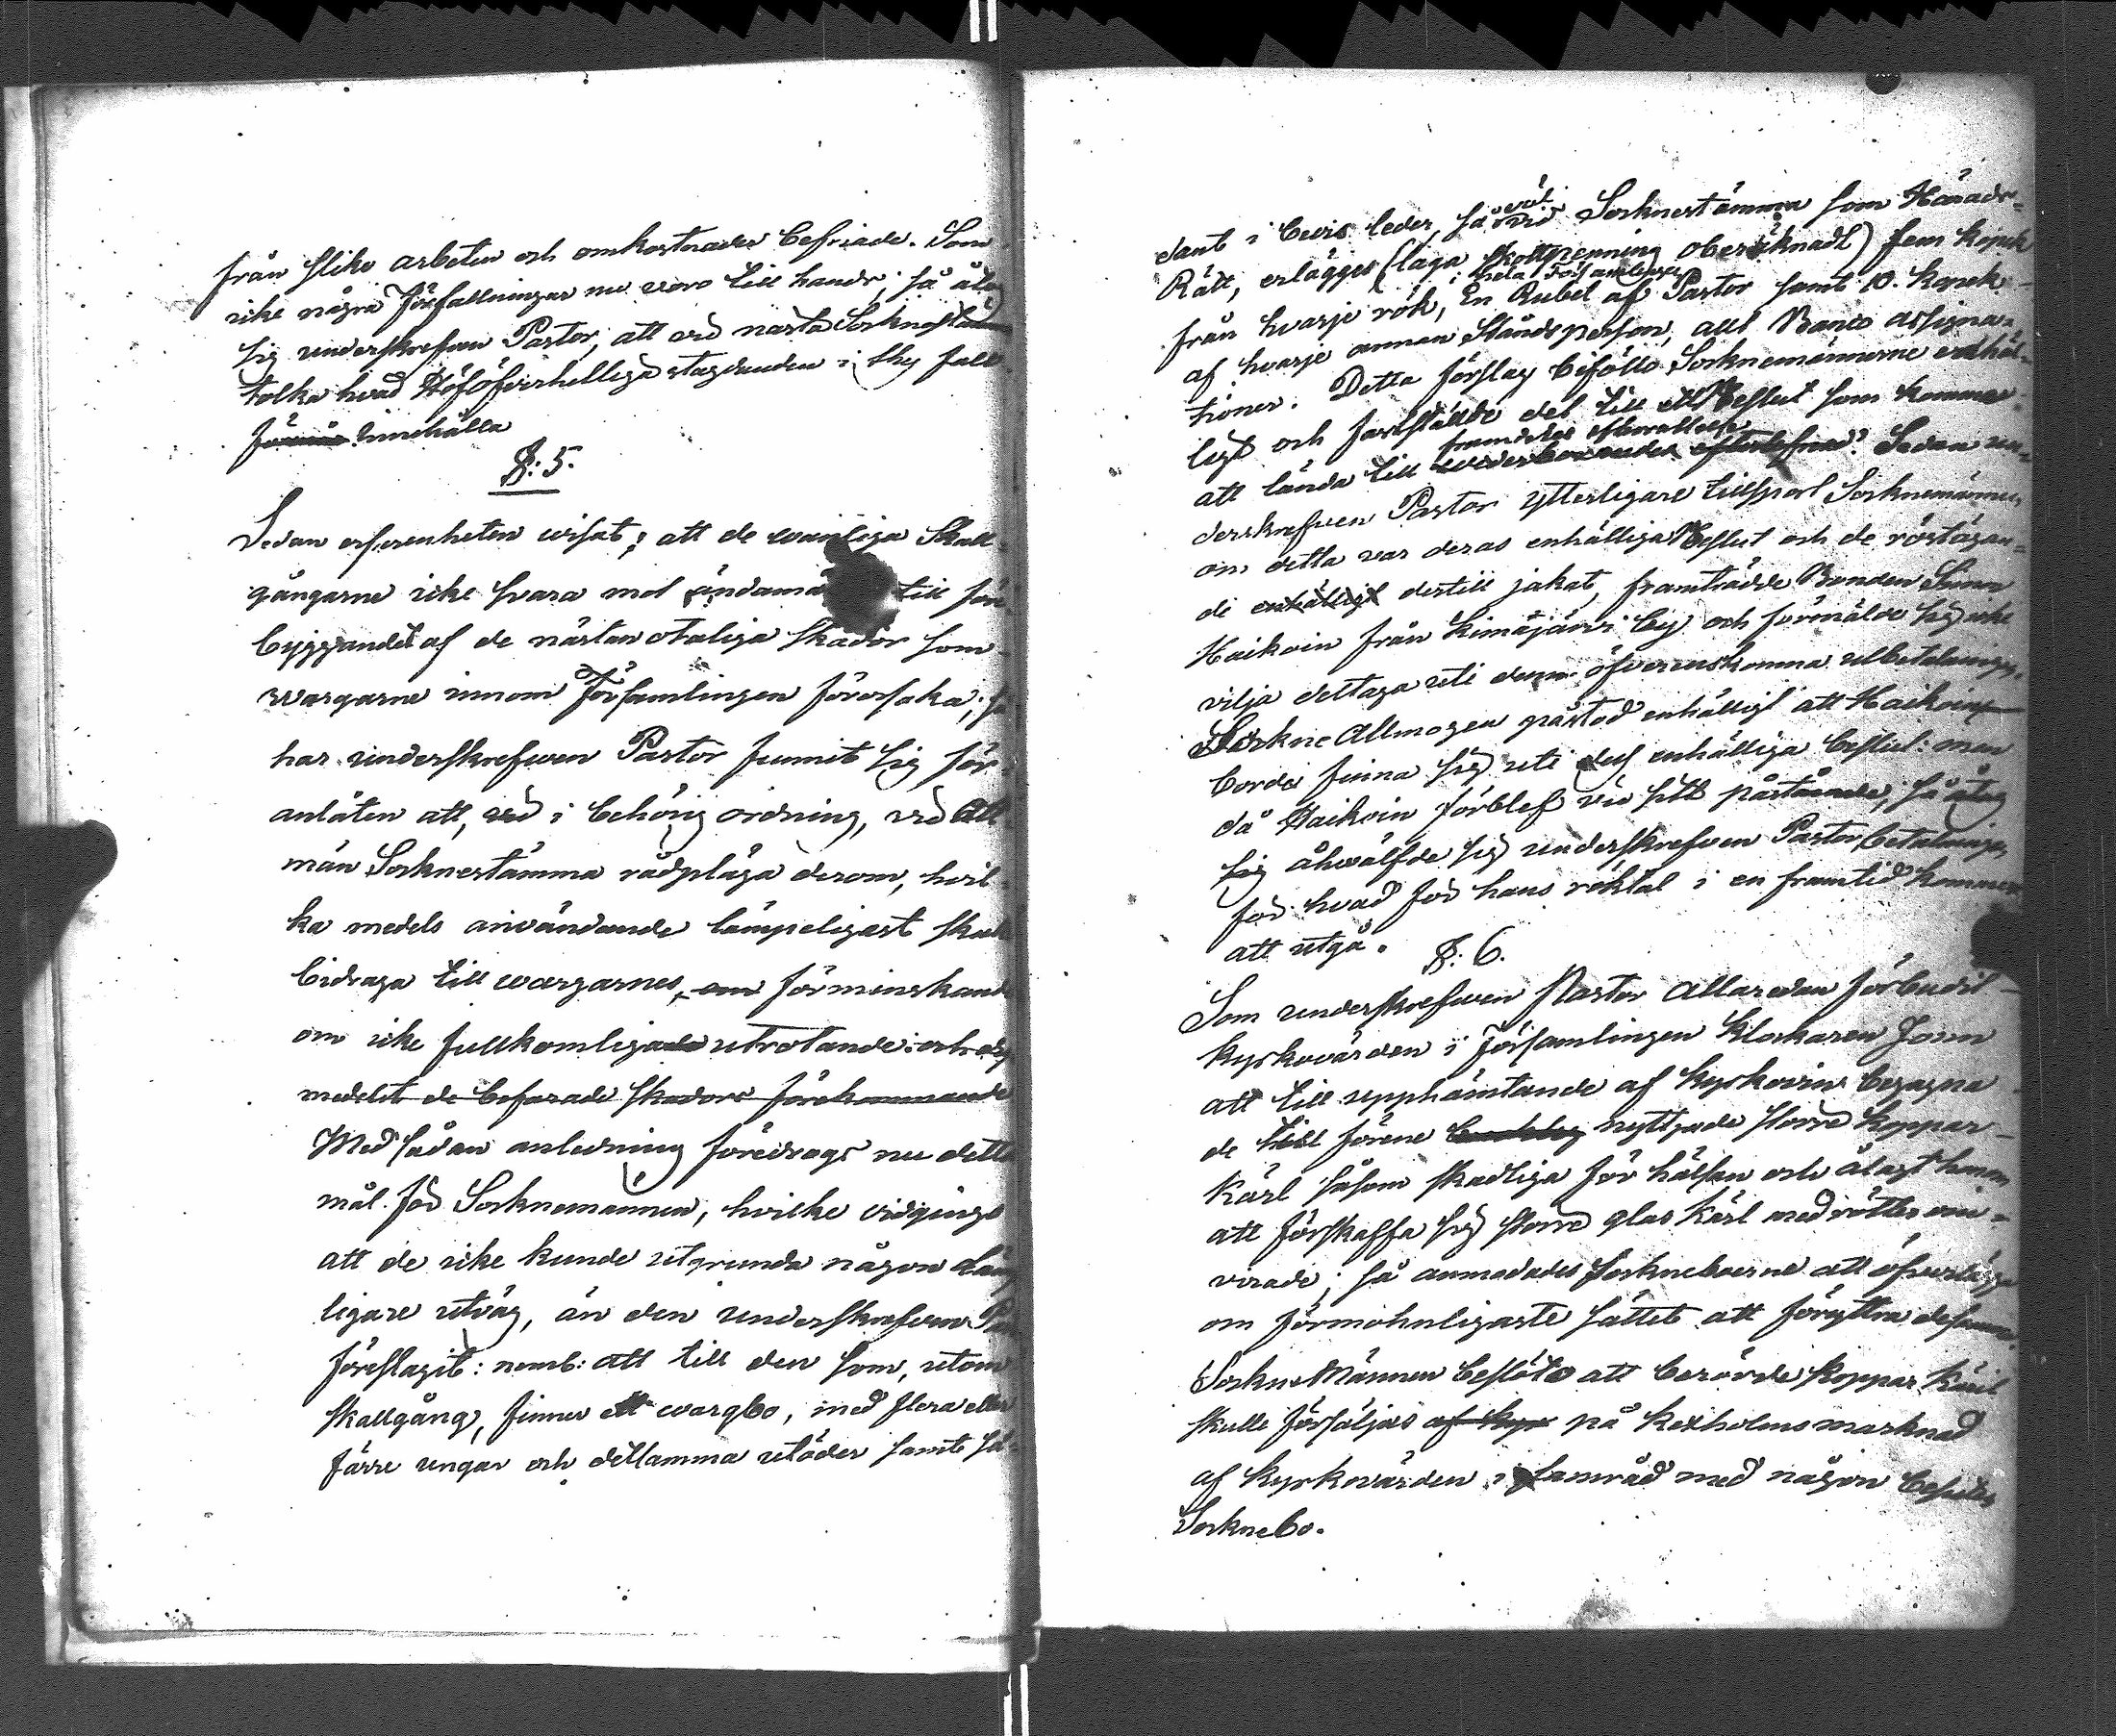 från slike arbeten och omkostnader befriade. Som
icke några författningar nu voro till hands; så åtog
sig underskrefwen Pastor, att vid nästa Socknestämma
tolka hvad Höglöflige stagdanden i thy fall
innehålla
§: 5.
Sedan erfarenheten wisat; att de wanliga Skall-
gångarne icke svara mot ändamå till före-
byggandet af de nästan otaliga skador som
wargarne innom Församlingen förorsaka; så
har underskrefwen Pastor funnit sig för-
anlåten att, i behörig ordning, vid All-
män Socknestämma rådpläga derom, hvil-
ka medels användande lämpeligast skulle
bidraga till wargarnes, om förminskande
om icke fullkomliga utrotande: och dy
medelst de befarade skadors förekommande
Med sådan anledning föredrogs nu detta
mål för Socknemännen, hvilke vidgingo
att de icke kunde utgrunda någon läng
ligare utväg, än den underskrefwen Pas
föreslagit: neml: att till den som, utom
skallgång, finner ett wargbo, med flera eller
färre ungar och detsamma utöder samt så-
dant i bevis leder, så väl vid Socknestämma som Härads-
Rätt, erlägges (laga skottpenning oberäknadt) fem kopek
i hela Församlingen
från hvarje rök, En Rubel af Pastor samt 10. kopek
af hvarje annan Ståndsperson, allt Banco Assigna-
tioner. Detta förslag biföllo Socknemännerne enhäl-
ligt och fastställde det till ett Beslut som kommer
framdeles efterrättelse
att lända till wederbörandes efterlefnad. Sedan un-
derskrefwen Pastor ytterligare tillsport Socknemännen
om detta var deras enhälliga Beslut och de röstägan-
de enhälligt dertill jakat, framträdde Bonden Simon
Haikoin från Kimäjärvi by och förmälde sig icke
vilja deltaga uti denna öfverenskomna utbetalningen.
Sockne Allmogen påstod enhälligt att Haikoin
borde finna sig uti dess enhälliga beslut: men
då Haikoin förblef vid sitt påstående, så åtog
sig åhwälfde sig underskrefwen Pastor betalningen
för hvad för hans röktal i en framtid kommer
att utgå.
§: 6.
Som underskrefwen Pastor Allaredan förbudit
kyrkovärden i Församlingen Klockaren Jonn
att till upphämtande af kyrkovin begagna
de till förene nyttjade storre koppar-
kärl såsom skadliga för hälsan och ålagt honom
att förskaffa sig storre glas kärl med rötter om-
virade; så anmodades Socknebоerne att öfverlägga
om förmohnligaste sättet att föryttra desamma.
SockneMännen beslöto att berörde koppar kärl
skulle försäljas af kyr på Kexholms marknad
af kyrkovärden i samråd med någon besuten
Socknebo.